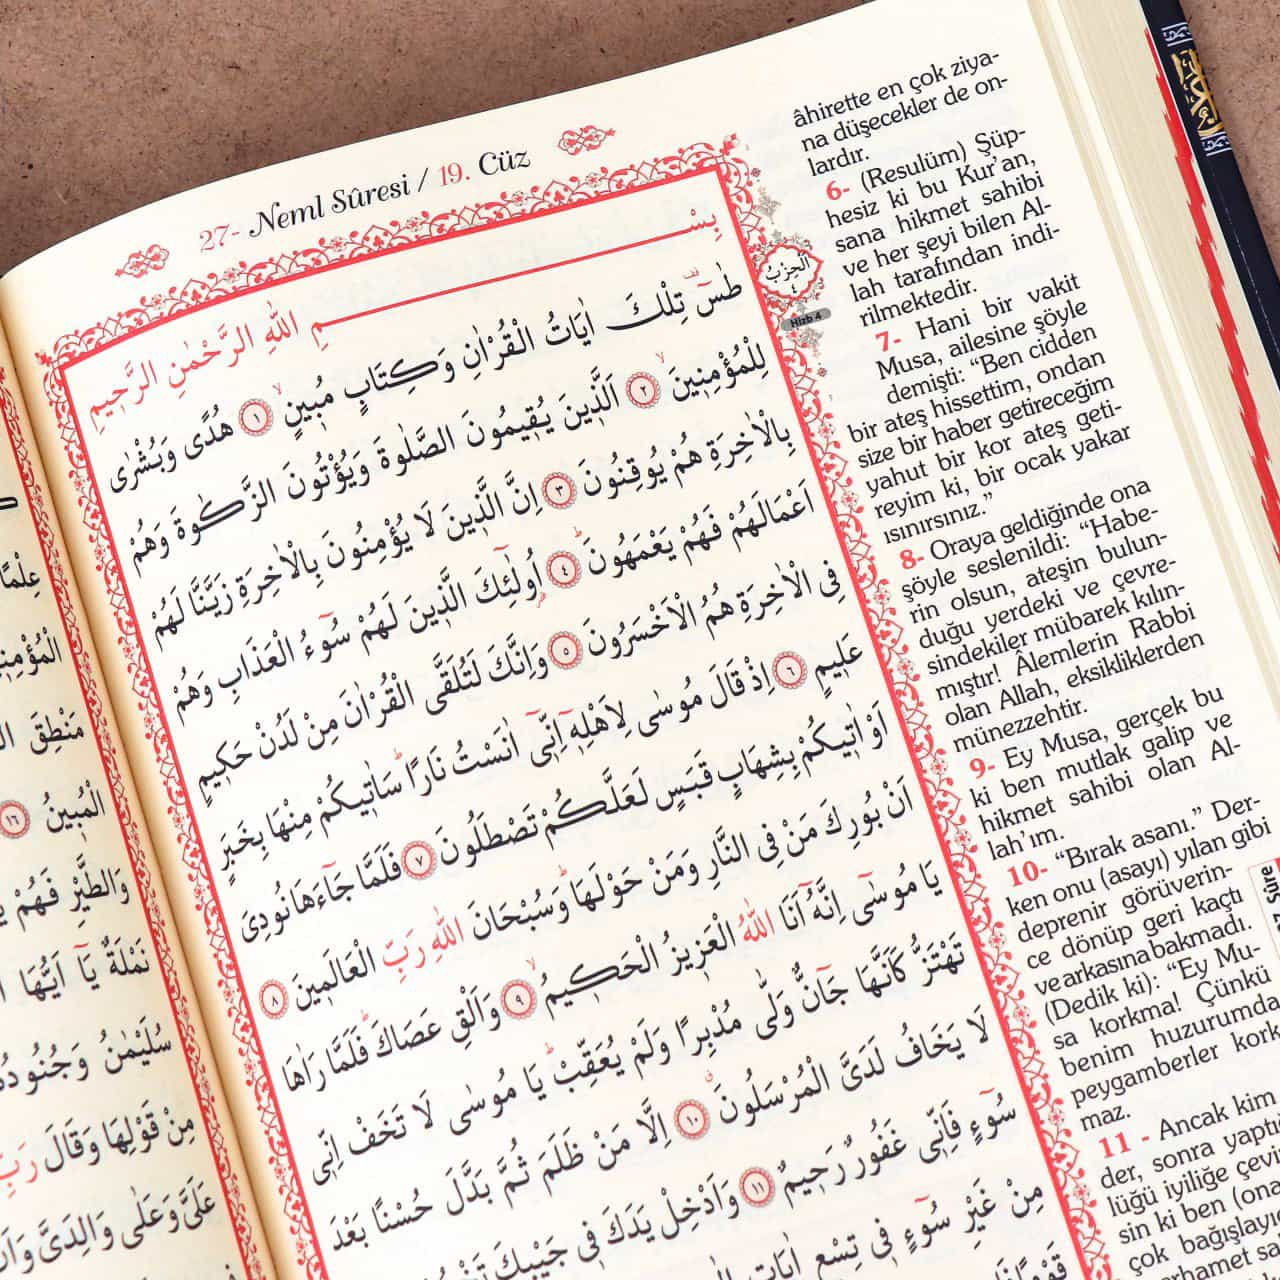 27- Neml Sûresi / 19. Cüz
بِسْمِ اللّٰهِ الرَّحْمٰنِ الرَّحٖيمِ
طٰسٓ تِلْكَ اٰيَاتُ الْقُرْاٰنِ وَكِتَابٍ مُبٖينٍ ١ هُدًى وَبُشْرٰى
لِلْمُؤْمِنٖينَ ٢ اَلَّذٖينَ يُقٖيمُونَ الصَّلٰوةَ وَيُؤْتُونَ الزَّكٰوةَ وَهُمْ
بِالْاٰخِرَةِ هُمْ يُوقِنُونَ ٣ اِنَّ الَّذٖينَ لَا يُؤْمِنُونَ بِالْاٰخِرَةِ زَيَّنَّا لَهُمْ
اَعْمَالَهُمْ فَهُمْ يَعْمَهُونَ ٤ اُولٰٓئِكَ الَّذٖينَ لَهُمْ سُٓوءُ الْعَذَابِ وَهُمْ
فِى الْاٰخِرَةِ هُمُ الْاَخْسَرُونَ ٥ وَاِنَّكَ لَتُلَقَّى الْقُرْاٰنَ مِنْ لَدُنْ حَكٖيمٍ
عَلٖيمٍ ٦ اِذْ قَالَ مُوسٰى لِاَهْلِهٖٓ اِنّٖٓى اٰنَسْتُ نَارًا سَاٰتٖيكُمْ مِنْهَا بِخَبَرٍ
اَوْ اٰتٖيكُمْ بِشِهَابٍ قَبَسٍ لَعَلَّكُمْ تَصْطَلُونَ ٧ فَلَمَّا جَٓاءَهَا نُودِىَ
اَنْ بُورِكَ مَنْ فِى النَّارِ وَمَنْ حَوْلَهَا وَسُبْحَانَ اللّٰهِ رَبِّ الْعَالَمٖينَ ٨
يَا مُوسٰٓى اِنَّهُٓ اَنَا اللّٰهُ الْعَزٖيزُ الْحَكٖيمُ ٩ وَاَلْقِ عَصَاكَ فَلَمَّا رَاٰهَا
تَهْتَزُّ كَاَنَّهَا جَٓانٌّ وَلّٰى مُدْبِرًا وَلَمْ يُعَقِّبْ يَا مُوسٰى لَا تَخَفْ اِنّٖى
لَا يَخَافُ لَدَىَّ الْمُرْسَلُونَ ١٠ اِلَّا مَنْ ظَلَمَ ثُمَّ بَدَّلَ حُسْنًا بَعْدَ
سُٓوءٍ فَاِنّٖى غَفُورٌ رَحٖيمٌ ١١ وَاَدْخِلْ يَدَكَ فٖى جَيْبِكَ
مِنْ غَيْرِ سُٓوءٍ فٖى تِسْعِ اٰيَاتٍ
اَلْحِزْبُ
٤
Hizb 4
âhirette en çok ziya-
na düşecekler de on-
lardır.
6- (Resulüm) Şüp-
hesiz ki bu Kur'an,
sana hikmet sahibi
ve her şeyi bilen Al-
lah tarafından indi-
rilmektedir.
7- Hani bir vakit
Musa, ailesine şöyle
demişti: "Ben cidden
bir ateş hissettim, ondan
size bir haber getireceğim
yahut bir kor ateş geti-
reyim ki, bir ocak yakar
ısınırsınız."
8- Oraya geldiğinde ona
şöyle seslenildi: "Habe-
rin olsun, ateşin bulun-
duğu yerdeki ve çevre-
sindekiler mübarek kılın-
mıştır! Âlemlerin Rabbi
olan Allah, eksikliklerden
münezzehtir.
9- Ey Musa, gerçek bu
ki ben mutlak galip ve
hikmet sahibi olan Al-
lah'ım.
10- "Bırak asanı." Der-
ken onu (asayı) yılan gibi
deprenir görüverin-
ce dönüp geri kaçtı
ve arkasına bakmadı.
(Dedik ki): "Ey Mu-
sa korkma! Çünkü
benim huzurumda
peygamberler kork
maz.
11 - Ancak kim
der, sonra yaptı
lüğü iyiliğe çevi
sin ki ben (ona
çok bağışlayıc
Sûre
عِلْمًا
مَنْطِقَ
الْمُبٖينُ ١٦
وَالطَّيْرِ فَهُمْ
نَمْلَةٌ يَٓا اَيُّهَا
سُلَيْمٰنُ وَجُنُودُهُ
مِنْ قَوْلِهَا وَقَالَ رَبِّ
عَلَىَّ وَعَلٰى وَالِدَىَّ وَاَنْ